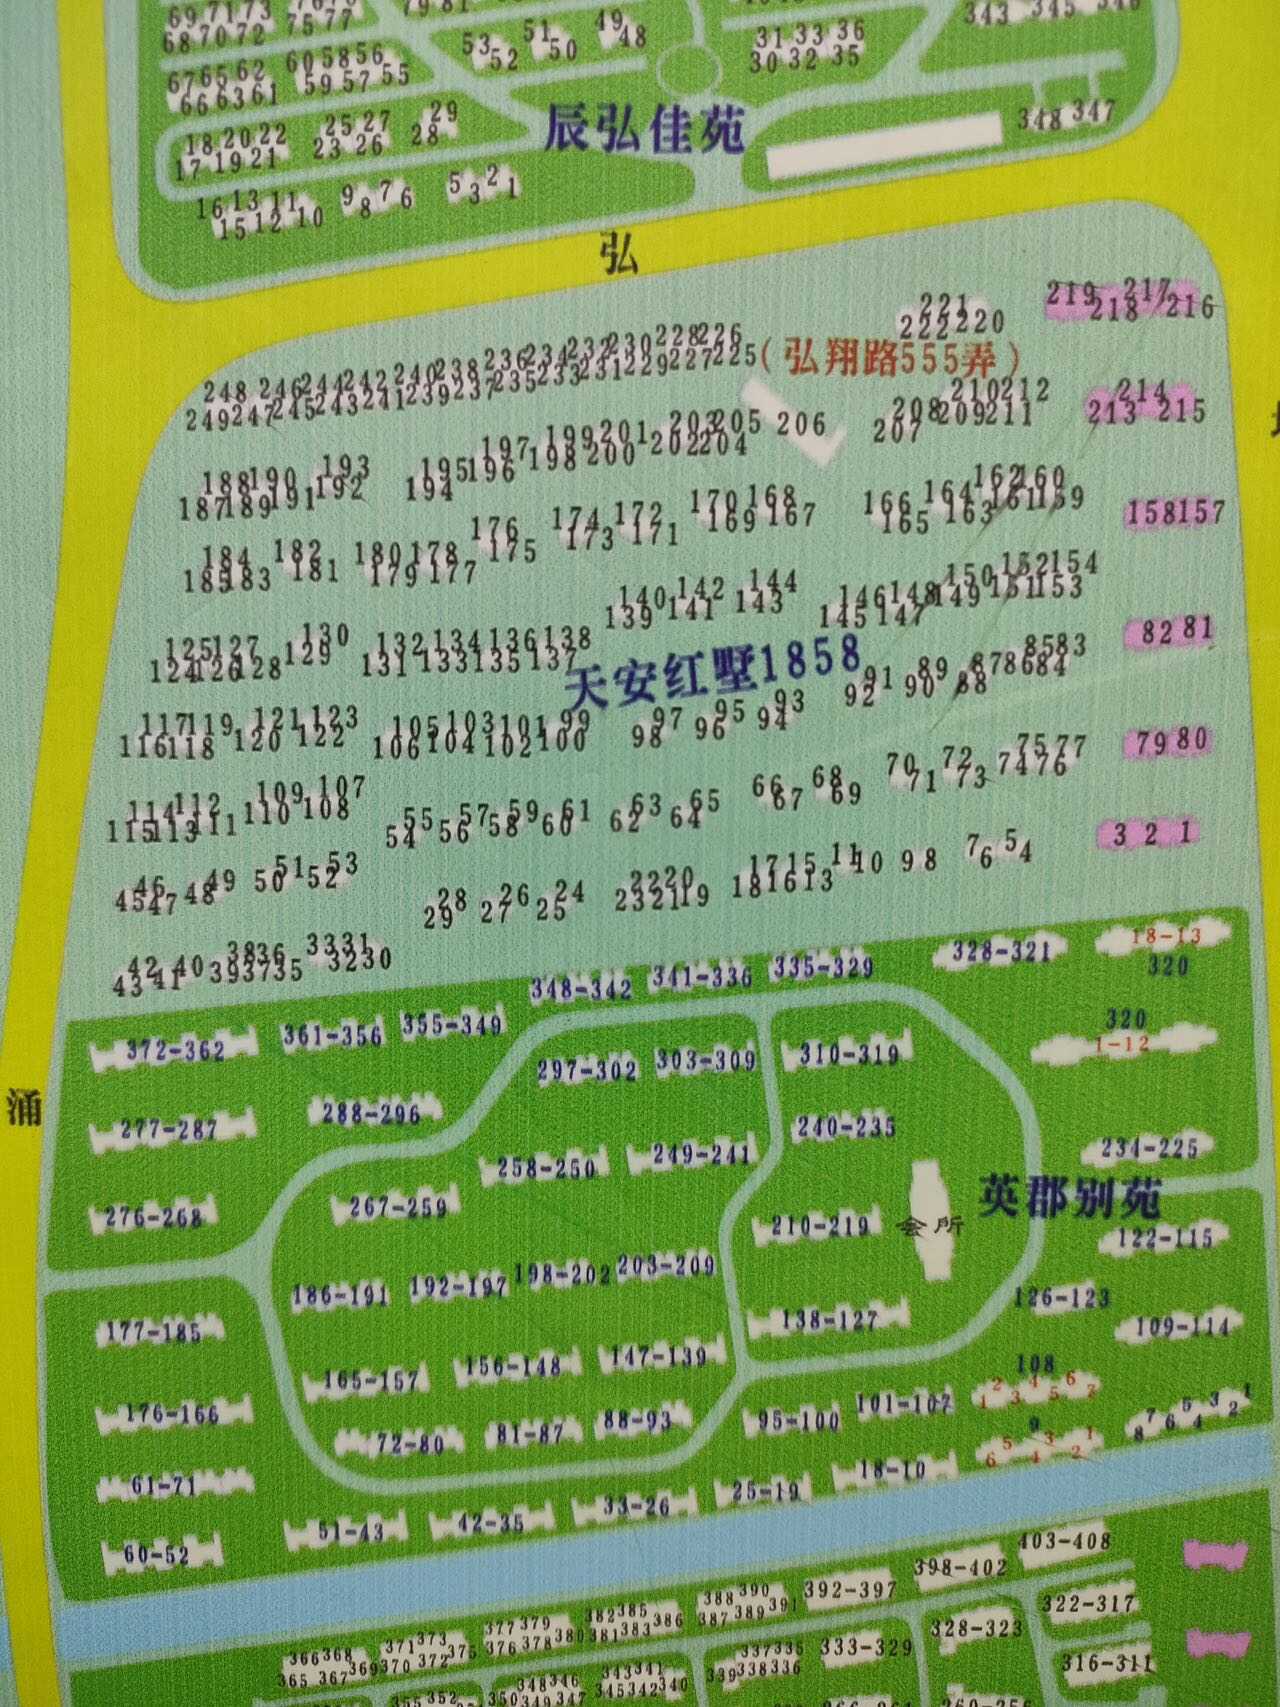 69 71 73
68 70 72 75 77
79 81
53 51 49
52 50 48
31 33 36
30 32 35
343 345
67 65 62 60 58 56
66 63 61 59 57 55
18 20 22 25 27 29
17 19 21 23 26 28
辰弘佳苑
348 347
16 13 11 9 7 6 5 2 1
15 12 10 8 3
弘
219 217
218 216
221
222 220
248 246 244 242 240 238 236 234 232 230 228 226
249 247 245 243 241 239 237 235 233 231 229 227 225
(弘翔路555弄)
210 212
208 209 211
207
214
213 215
188 190 193
187 189 191 192
195 197 199 201 203 205 206
194 196 198 200 202 204
162 160
166 164 161 159
165 163
158 157
184 182 180 178 176 174 172 170 168
185 183 181 179 177 175 173 171 169 167
140 142 144
139 141 143
146 148 150 152 154
145 147 149 151 153
125 127 130
124 126 128 129
132 134 136 138
131 133 135 137
天安红墅1858
82 81
117 119 121 123
116 118 120 122
105 103 101 99
106 104 102 100
97 95 93
98 96 94
91 89 87 85 83
92 90 88 86 84
79 80
114 112 109 107
115 113 111 110 108
55 57 59 61 63 65
54 56 58 60 62 64
66 68 70 72 75 77
67 69 71 73 74 76
3 2 1
46 49 51 53
45 47 48 50 52
28 26 24 22 20
29 27 25 23 21 19
17 15 11 10 9 8 7 5 4
18 16 13 6
42 40 38 36 33 31
43 41 39 37 35 32 30
348-342 341-336 335-329 328-321 18-13
320
372-362 361-356 355-349
320
297-302 303-309 310-319 1-12
涌
277-287 288-296
258-250 249-241 240-235 234-225
276-268 267-259
英郡别苑
210-219 会所 122-115
186-191 192-197 198-202 203-209
177-185 138-127 126-123 109-114
165-157 156-148 147-139 108
1 2 3 4 5 6 7
176-166 72-80 81-87 88-93 95-100 101-107
8 7 6 5 4 3 2 1
9
6 5 4 3 2 1
61-71
60-52 51-43 42-35 33-26 25-19 18-10
403-408
398-402
392-397
388 390
387 389 391
382 385 386
381 383
377 379
376 378 380
371 373 375
370 372
366 368
365 367 369
322-317
328-323
333-329
337 335
339 338 336
316-311
343 341
345 342 340
348 346
350 349 347
355 352